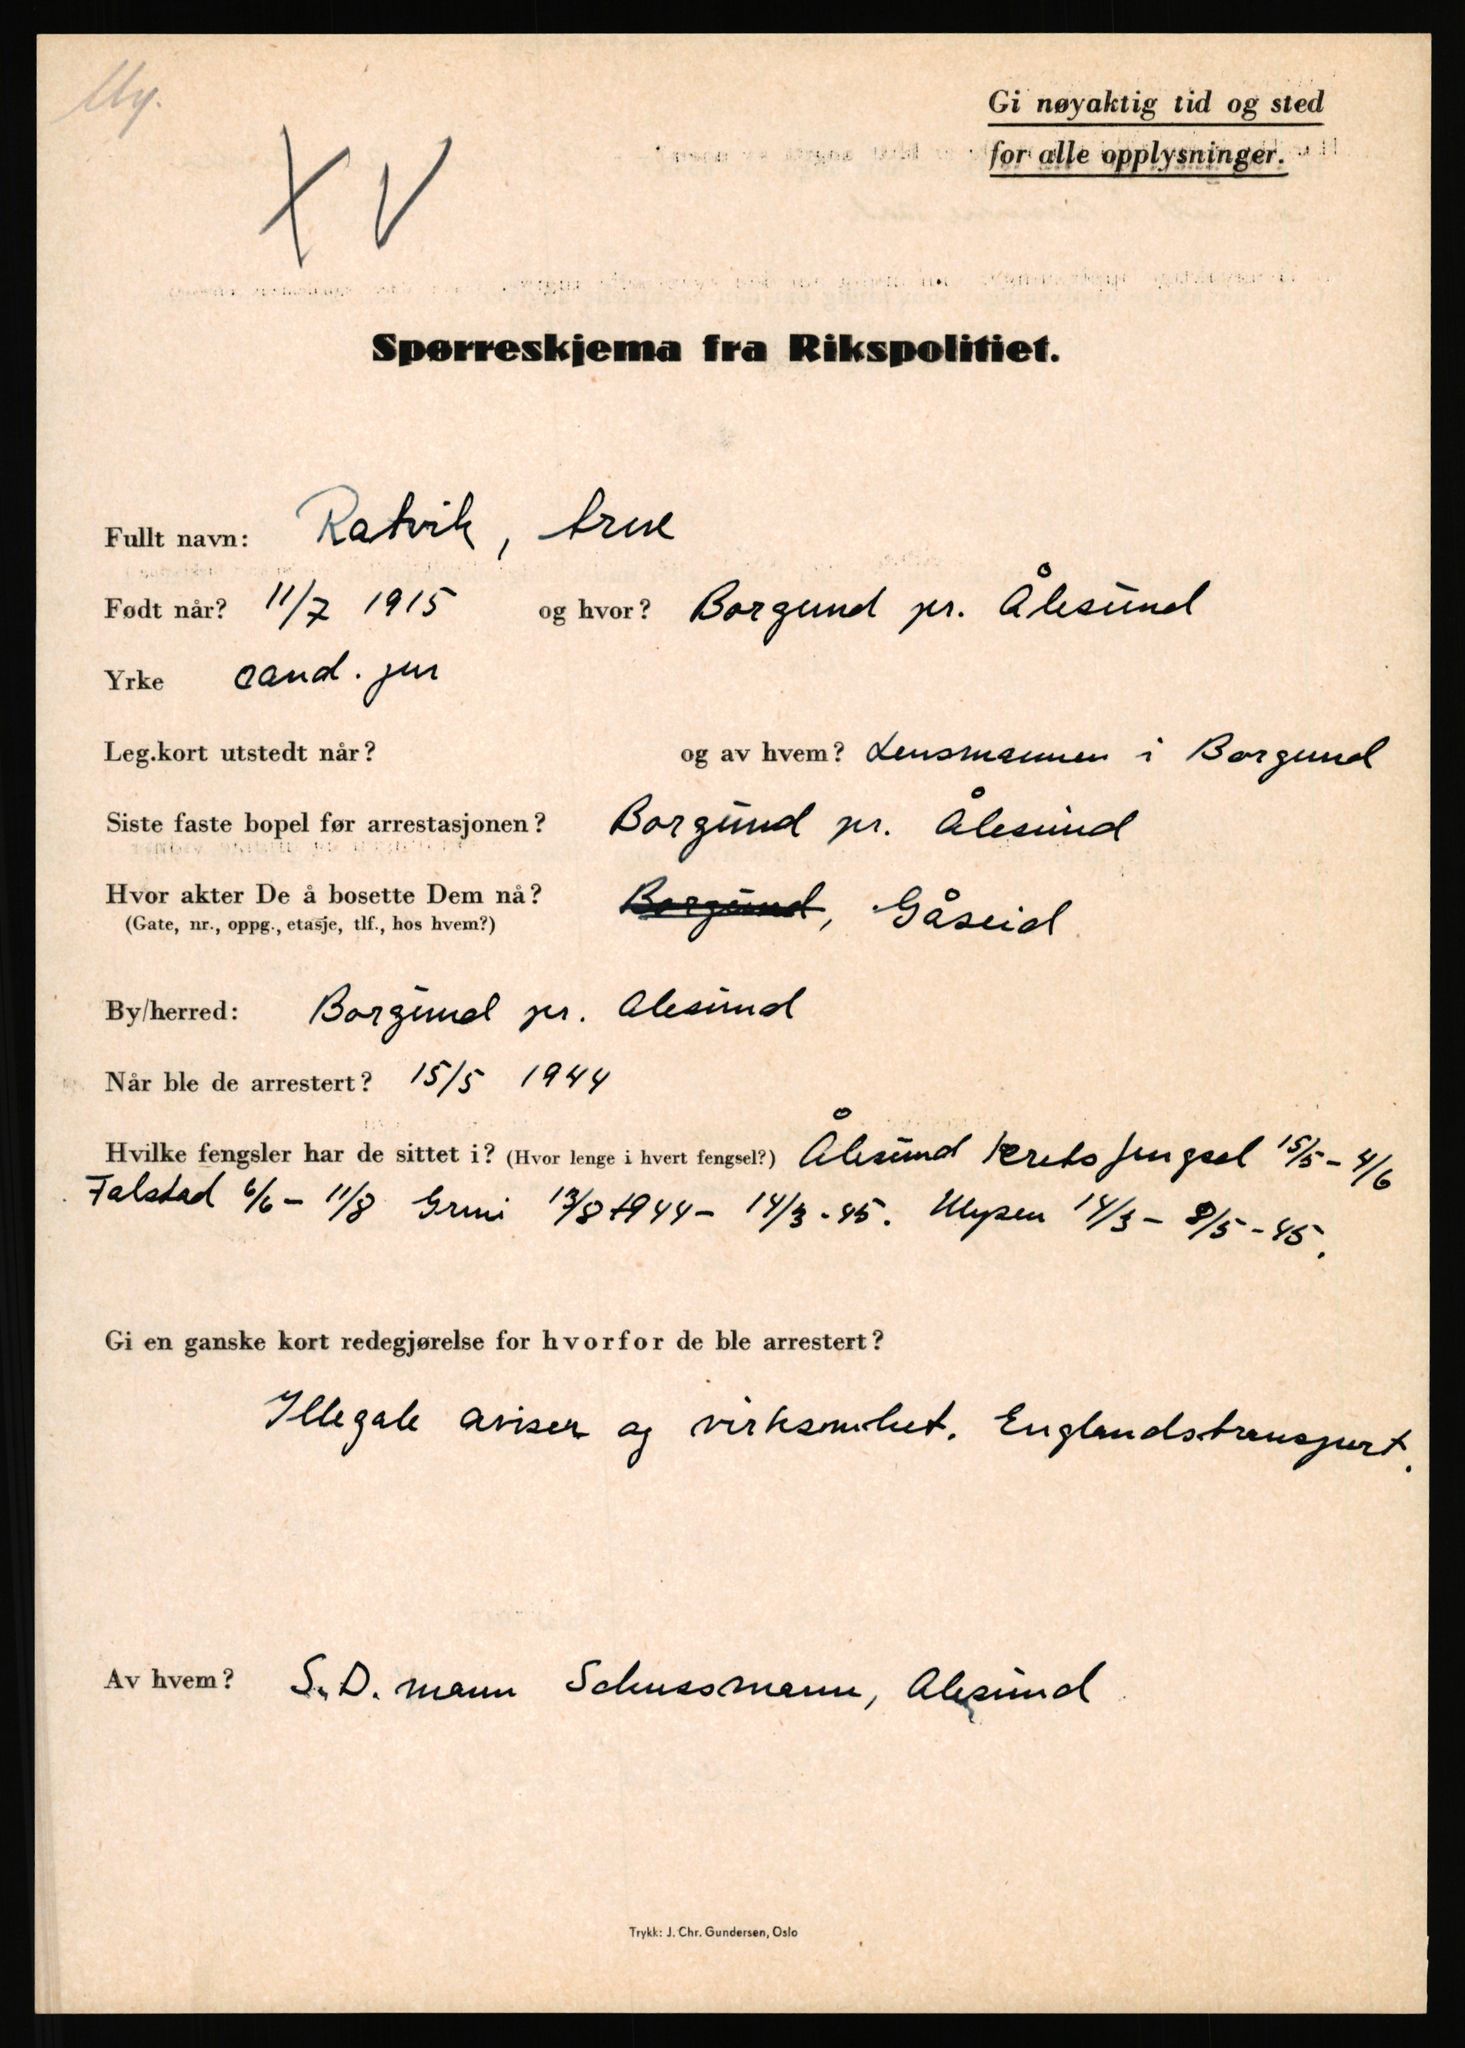 My.
Gi nøyaktig tid og sted
for alle opplysninger.
X V
Spørreskjema fra Rikspolitiet.
Fullt navn: Ratvik, Arne
Født når? 11/7 1915 og hvor? Borgund pr. Ålesund
Yrke cand. jur
Leg.kort utstedt når? og av hvem? Lensmannen i Borgund
Siste faste bopel før arrestasjonen? Borgund pr. Ålesund
Hvor akter De å bosette Dem nå? Borgund, Gåseid
(Gate, nr., oppg., etasje, tlf., hos hvem?)
By/herred: Borgund pr. Alesund
Når ble de arrestert? 15/5 1944
Hvilke fengsler har de sittet i? (Hvor lenge i hvert fengsel?) Ålesund Kretsfengsel 15/5 – 4/6
Falstad 6/6 – 11/8 Grini 13/8 1944 – 14/3 - 45. Mysen 14/3 – 8/5 - 45.
Gi en ganske kort redegjørelse for hvorfor de ble arrestert?
Illegale aviser og virksomhet. Englandstransport.
Av hvem? S.D. mann Schussmann, Alesund
Trykk: J. Chr. Gundersen, Oslo